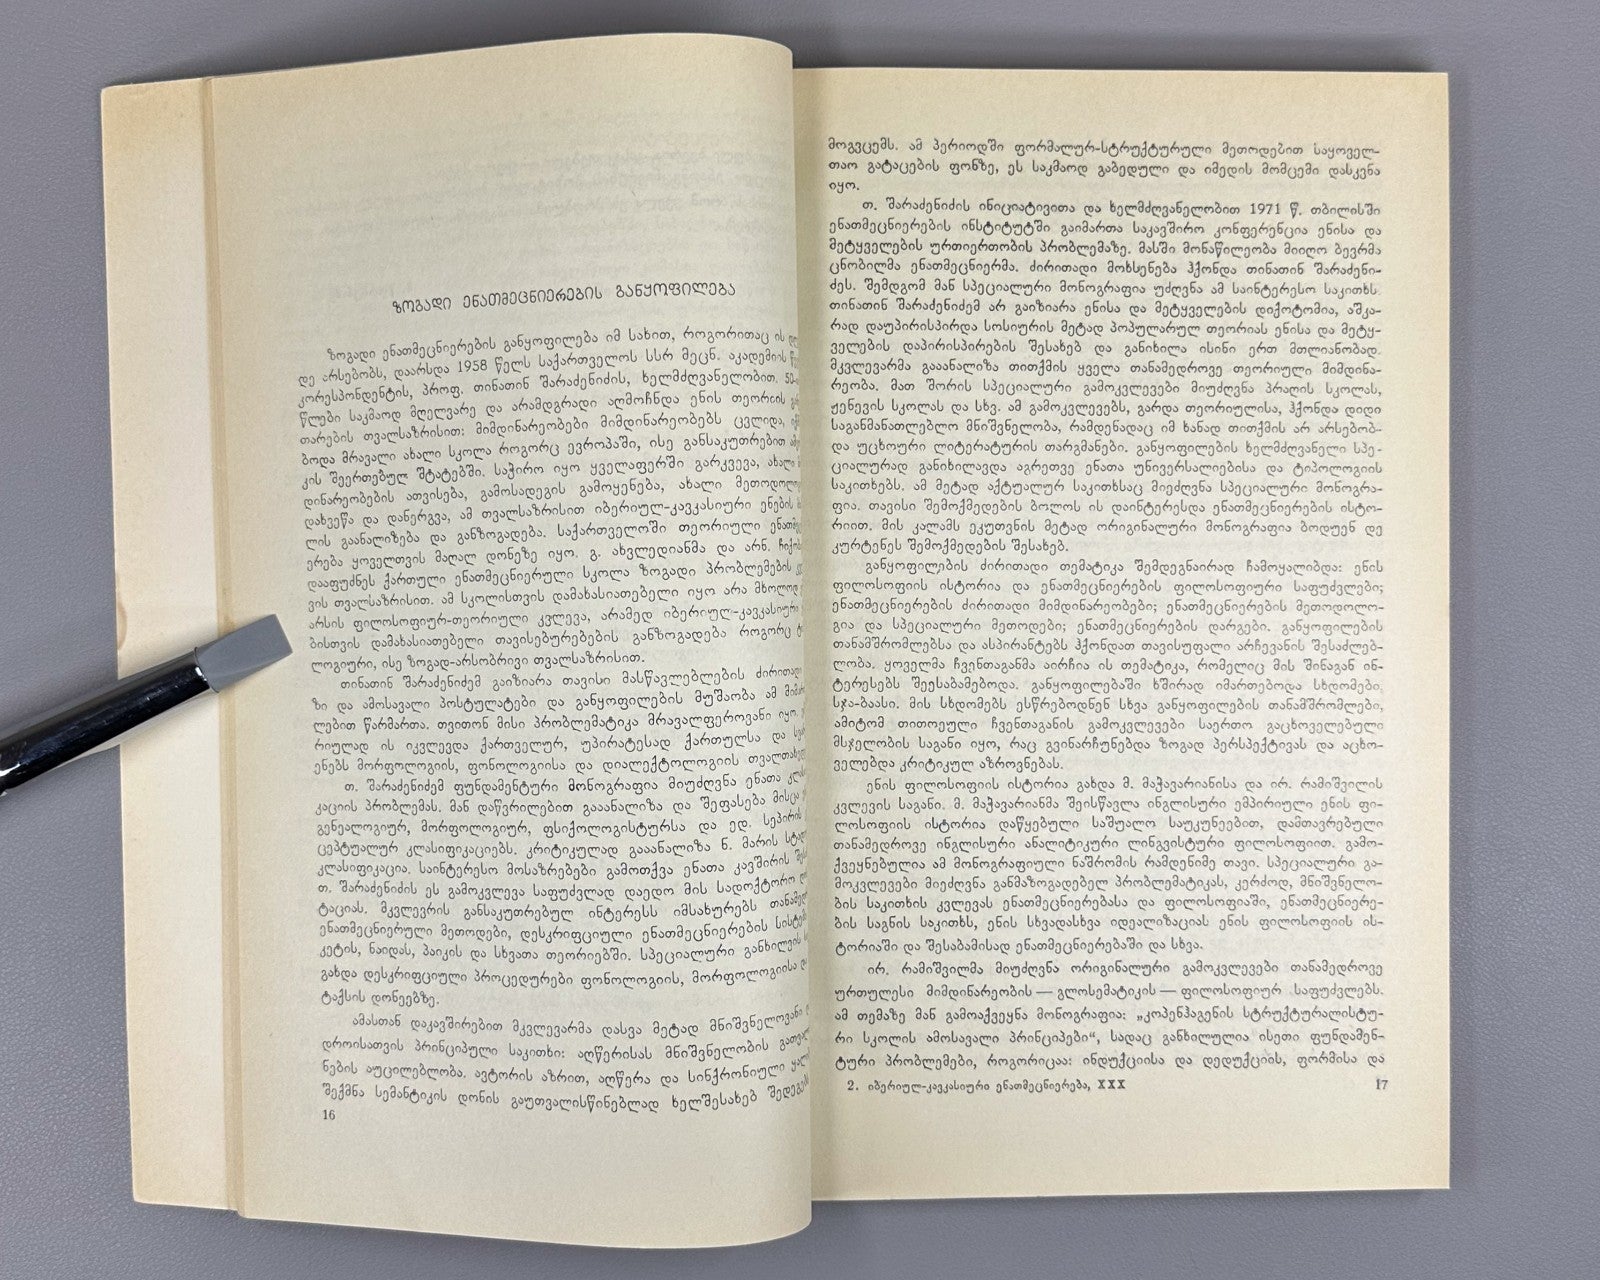 ზოგადი ენათმეცნიერების განყოფილება
ზოგადი ენათმეცნიერების განყოფილება იმ სახით, როგორითაც ის
დე არსებობს, დაარსდა 1958 წელს საქართველოს სსრ მეცნ. აკადემიის
კორესპონდენტის, პროფ. თინათინ შარაძენიძის, ხელმძღვანელობით. 50-
წლები საკმაოდ მღელვარე და არამდგრადი აღმოჩნდა ენის თეორიის
თარების თვალსაზრისით: მიმდინარეობები მიმდინარეობებს ცვლიდა,
ბოდა მრავალი ახალი სკოლა როგორც ევროპაში, ისე განსაკუთრებით
კის შეერთებულ შტატებში. საჭირო იყო ყველაფერში გარკვევა, ახალი
დინარეობების ათვისება, გამოსადეგის გამოყენება, ახალი
დახვეწა და დანერგვა, ამ თვალსაზრისით იბერიულ-კავკასიური ენების
ლის გაანალიზება და განზოგადება. საქართველოში თეორიული
ერება ყოველთვის მაღალ დონეზე იყო. გ. ახვლედიანმა და არნ.
დააფუძნეს ქართული ენათმეცნიერული სკოლა ზოგადი პრობლემების
ვის თვალსაზრისით. ამ სკოლისთვის დამახასიათებელი იყო არა მხოლოდ
არსის ფილოსოფიურ-თეორიული კვლევა, არამედ იბერიულ-კავკასიური
ბისთვის დამახასიათებელი თავისებურებების განზოგადება როგორც
ლოგიური, ისე ზოგად-არსობრივი თვალსაზრისით.
თინათინ შარაძენიძემ გაიზიარა თავისი მასწავლებლების ძირითადი
ზი და ამოსავალი პოსტულატები და განყოფილების მუშაობა ამ
ლებით წარმართა. თვითონ მისი პრობლემატიკა მრავალფეროვანი იყო.
რიულად ის იკვლევდა ქართველურ, უპირატესად ქართულსა და
ენებს მორფოლოგიის, ფონოლოგიისა და დიალექტოლოგიის
თ. შარაძენიძემ ფუნდამენტური მონოგრაფია მიუძღვნა ენათა
კაციის პრობლემას. მან დაწვრილებით გააანალიზა და შეფასება მისცა
გენეალოგიურ, მორფოლოგიურ, ფსიქოლოგისტურსა და ედ. სეპირის
ცეპტუალურ კლასიფიკაციებს. კრიტიკულად გააანალიზა ნ. მარის
კლასიფიკაცია. საინტერესო მოსაზრებები გამოთქვა ენათა კავშირის
თ. შარაძენიძის ეს გამოკვლევა საფუძვლად დაედო მის სადოქტორო
ტაციას. მკვლევრის განსაკუთრებულ ინტერესს იმსახურებს
ენათმეცნიერული მეთოდები, დესკრიფციული ენათმეცნიერების
კეტის, ნაიდას, პაიკის და სხვათა თეორიებში. სპეციალური განხილვის
გახდა დესკრიფციული პროცედურები ფონოლოგიის, მორფოლოგიისა და
ტაქსის დონეებზე.
ამასთან დაკავშირებით მკვლევარმა დასვა მეტად მნიშვნელოვანი
დროისათვის პრინციპული საკითხი: აღწერისას მნიშვნელობის
ნების აუცილებლობა. ავტორის აზრით, აღწერა და სინქრონიული
შექმნა სემანტიკის დონის გაუთვალისწინებლად ხელშესახებ
16
მოგვცემს. ამ პერიოდში ფორმალურ-სტრუქტურული მეთოდებით საყოველ-
თაო გატაცების ფონზე, ეს საკმაოდ გაბედული და იმედის მომცემი დასკვნა
იყო.
თ. შარაძენიძის ინიციატივითა და ხელმძღვანელობით 1971 წ. თბილისში
ენათმეცნიერების ინსტიტუტში გაიმართა საკავშირო კონფერენცია ენისა და
მეტყველების ურთიერთობის პრობლემაზე. მასში მონაწილეობა მიიღო ბევრმა
ცნობილმა ენათმეცნიერმა. ძირითადი მოხსენება ჰქონდა თინათინ შარაძენი-
ძეს. შემდგომ მან სპეციალური მონოგრაფია უძღვნა ამ საინტერესო საკითხს.
თინათინ შარაძენიძემ არ გაიზიარა ენისა და მეტყველების დიქოტომია, აშკა-
რად დაუპირისპირდა სოსიურის მეტად პოპულარულ თეორიას ენისა და მეტყ-
ველების დაპირისპირების შესახებ და განიხილა ისინი ერთ მთლიანობად.
მკვლევარმა გააანალიზა თითქმის ყველა თანამედროვე თეორიული მიმდინა-
რეობა. მათ შორის სპეციალური გამოკვლევები მიუძღვნა პრაღის სკოლას,
ჟენევის სკოლას და სხვ. ამ გამოკვლევებს, გარდა თეორიულისა, ჰქონდა დიდი
საგანმანათლებლო მნიშვნელობა, რამდენადაც იმ ხანად თითქმის არ არსებობ-
და უცხოური ლიტერატურის თარგმანები. განყოფილების ხელმძღვანელი სპე-
ციალურად განიხილავდა აგრეთვე ენათა უნივერსალიებისა და ტიპოლოგიის
საკითხებს. ამ მეტად აქტუალურ საკითხსაც მიეძღვნა სპეციალური მონოგრა-
ფია. თავისი შემოქმედების ბოლოს ის დაინტერესდა ენათმეცნიერების ისტო-
რიით. მის კალამს ეკუთვნის მეტად ორიგინალური მონოგრაფია ბოდუენ დე
კურტენეს შემოქმედების შესახებ.
განყოფილების ძირითადი თემატიკა შემდეგნაირად ჩამოყალიბდა: ენის
ფილოსოფიის ისტორია და ენათმეცნიერების ფილოსოფიური საფუძვლები;
ენათმეცნიერების ძირითადი მიმდინარეობები; ენათმეცნიერების მეთოდოლო-
გია და სპეციალური მეთოდები; ენათმეცნიერების დარგები. განყოფილების
თანამშრომლებსა და ასპირანტებს ჰქონდათ თავისუფალი არჩევანის შესაძლებ-
ლობა. ყოველმა ჩვენთაგანმა აირჩია ის თემატიკა, რომელიც მის შინაგან ინ-
ტერესებს შეესაბამებოდა. განყოფილებაში ხშირად იმართებოდა სხდომები,
სჯა-ბაასი. მის სხდომებს ესწრებოდნენ სხვა განყოფილების თანამშრომლები,
ამიტომ თითოეული ჩვენთაგანის გამოკვლევები საერთო გაცხოველებული
მსჯელობის საგანი იყო, რაც გვინარჩუნებდა ზოგად პერსპექტივას და აცხო-
ველებდა კრიტიკულ აზროვნებას.
ენის ფილოსოფიის ისტორია გახდა მ. მაჭავარიანისა და ირ. რამიშვილის
კვლევის საგანი. მ. მაჭავარიანმა შეისწავლა ინგლისური ემპირიული ენის ფი-
ლოსოფიის ისტორია დაწყებული საშუალო საუკუნეებით, დამთავრებული
თანამედროვე ინგლისური ანალიტიკური ლინგვისტური ფილოსოფიით. გამო-
ქვეყნებულია ამ მონოგრაფიული ნაშრომის რამდენიმე თავი. სპეციალური გა-
მოკვლევები მიეძღვნა განმაზოგადებელ პრობლემატიკას, კერძოდ, მნიშვნელო-
ბის საკითხის კვლევას ენათმეცნიერებასა და ფილოსოფიაში, ენათმეცნიერე-
ბის საგნის საკითხს, ენის სხვადასხვა იდეალიზაციას ენის ფილოსოფიის ის-
ტორიაში და შესაბამისად ენათმეცნიერებაში და სხვა.
ირ. რამიშვილმა მიუძღვნა ორიგინალური გამოკვლევები თანამედროვე
ურთულესი მიმდინარეობის — გლოსემატიკის — ფილოსოფიურ საფუძვლებს.
ამ თემაზე მან გამოაქვეყნა მონოგრაფია: „კოპენჰაგენის სტრუქტურალისტუ-
რი სკოლის ამოსავალი პრინციპები“, სადაც განხილულია ისეთი ფუნდამენ-
ტური პრობლემები, როგორიცაა: ინდუქციისა და დედუქციის, ფორმისა და
2. იბერიულ-კავკასიური ენათმეცნიერება, XXX
17